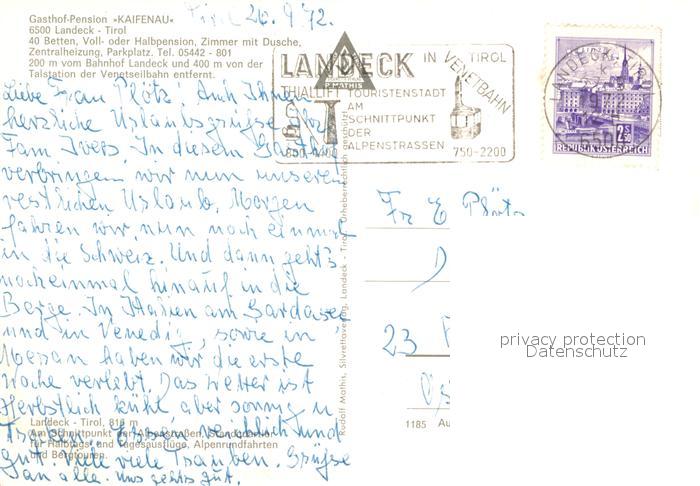 Gasthof-Pension »KAIFENAU«
6500 Landeck - Tirol
40 Betten, Voll- oder Halbpension, Zimmer mit Dusche,
Zentralheizung, Parkplatz. Tel. 05442 - 801
200 m vom Bahnhof Landeck und 400 m von der
Talstation der Venetseilbahn entfernt.
Tirol 26.9.72.
Liebe Frau Plötz! Auch Ihnen
herzliche Urlaubsgrüße Ihre
Fam. Ivers. In diesem Gasthof
verbringen wir nun unseren
restlichen Urlaub. Morgen
fahren wir nun noch einmal
in die Schweiz. Und dann geht's
nocheinmal hinauf in die
Berge. In Italien am Gardasee
und in Venedig, sowie in
Meran haben wir die erste
Woche verlebt. Das Wetter ist
Herbstlich kühl aber sonnig u.
Trocken. Essen reichlich und
gut. Viele viele Trauben. Grüße
an alle. Uns gehts gut.
Landeck - Tirol, 816 m
Am Schnittpunkt der Alpenstraßen, Standquartier
für Halbtags- und Tagesausflüge, Alpenrundfahrten
und Bergtouren.
LANDECK IN TIROL
THIALLIFT TOURISTENSTADT
AM
SCHNITTPUNKT
DER
ALPENSTRASSEN
VENETBAHN
750-2200
LANDECK, TIROL
6500
2S
REPUBLIK ÖSTERREICH
Rudolf Mathis, Silvrettaverlag, Landeck - Tirol Urheberrechtlich geschützt
R. MATHIS
Fr E Plötz
23
1185 Au
privacy protection
Datenschutz